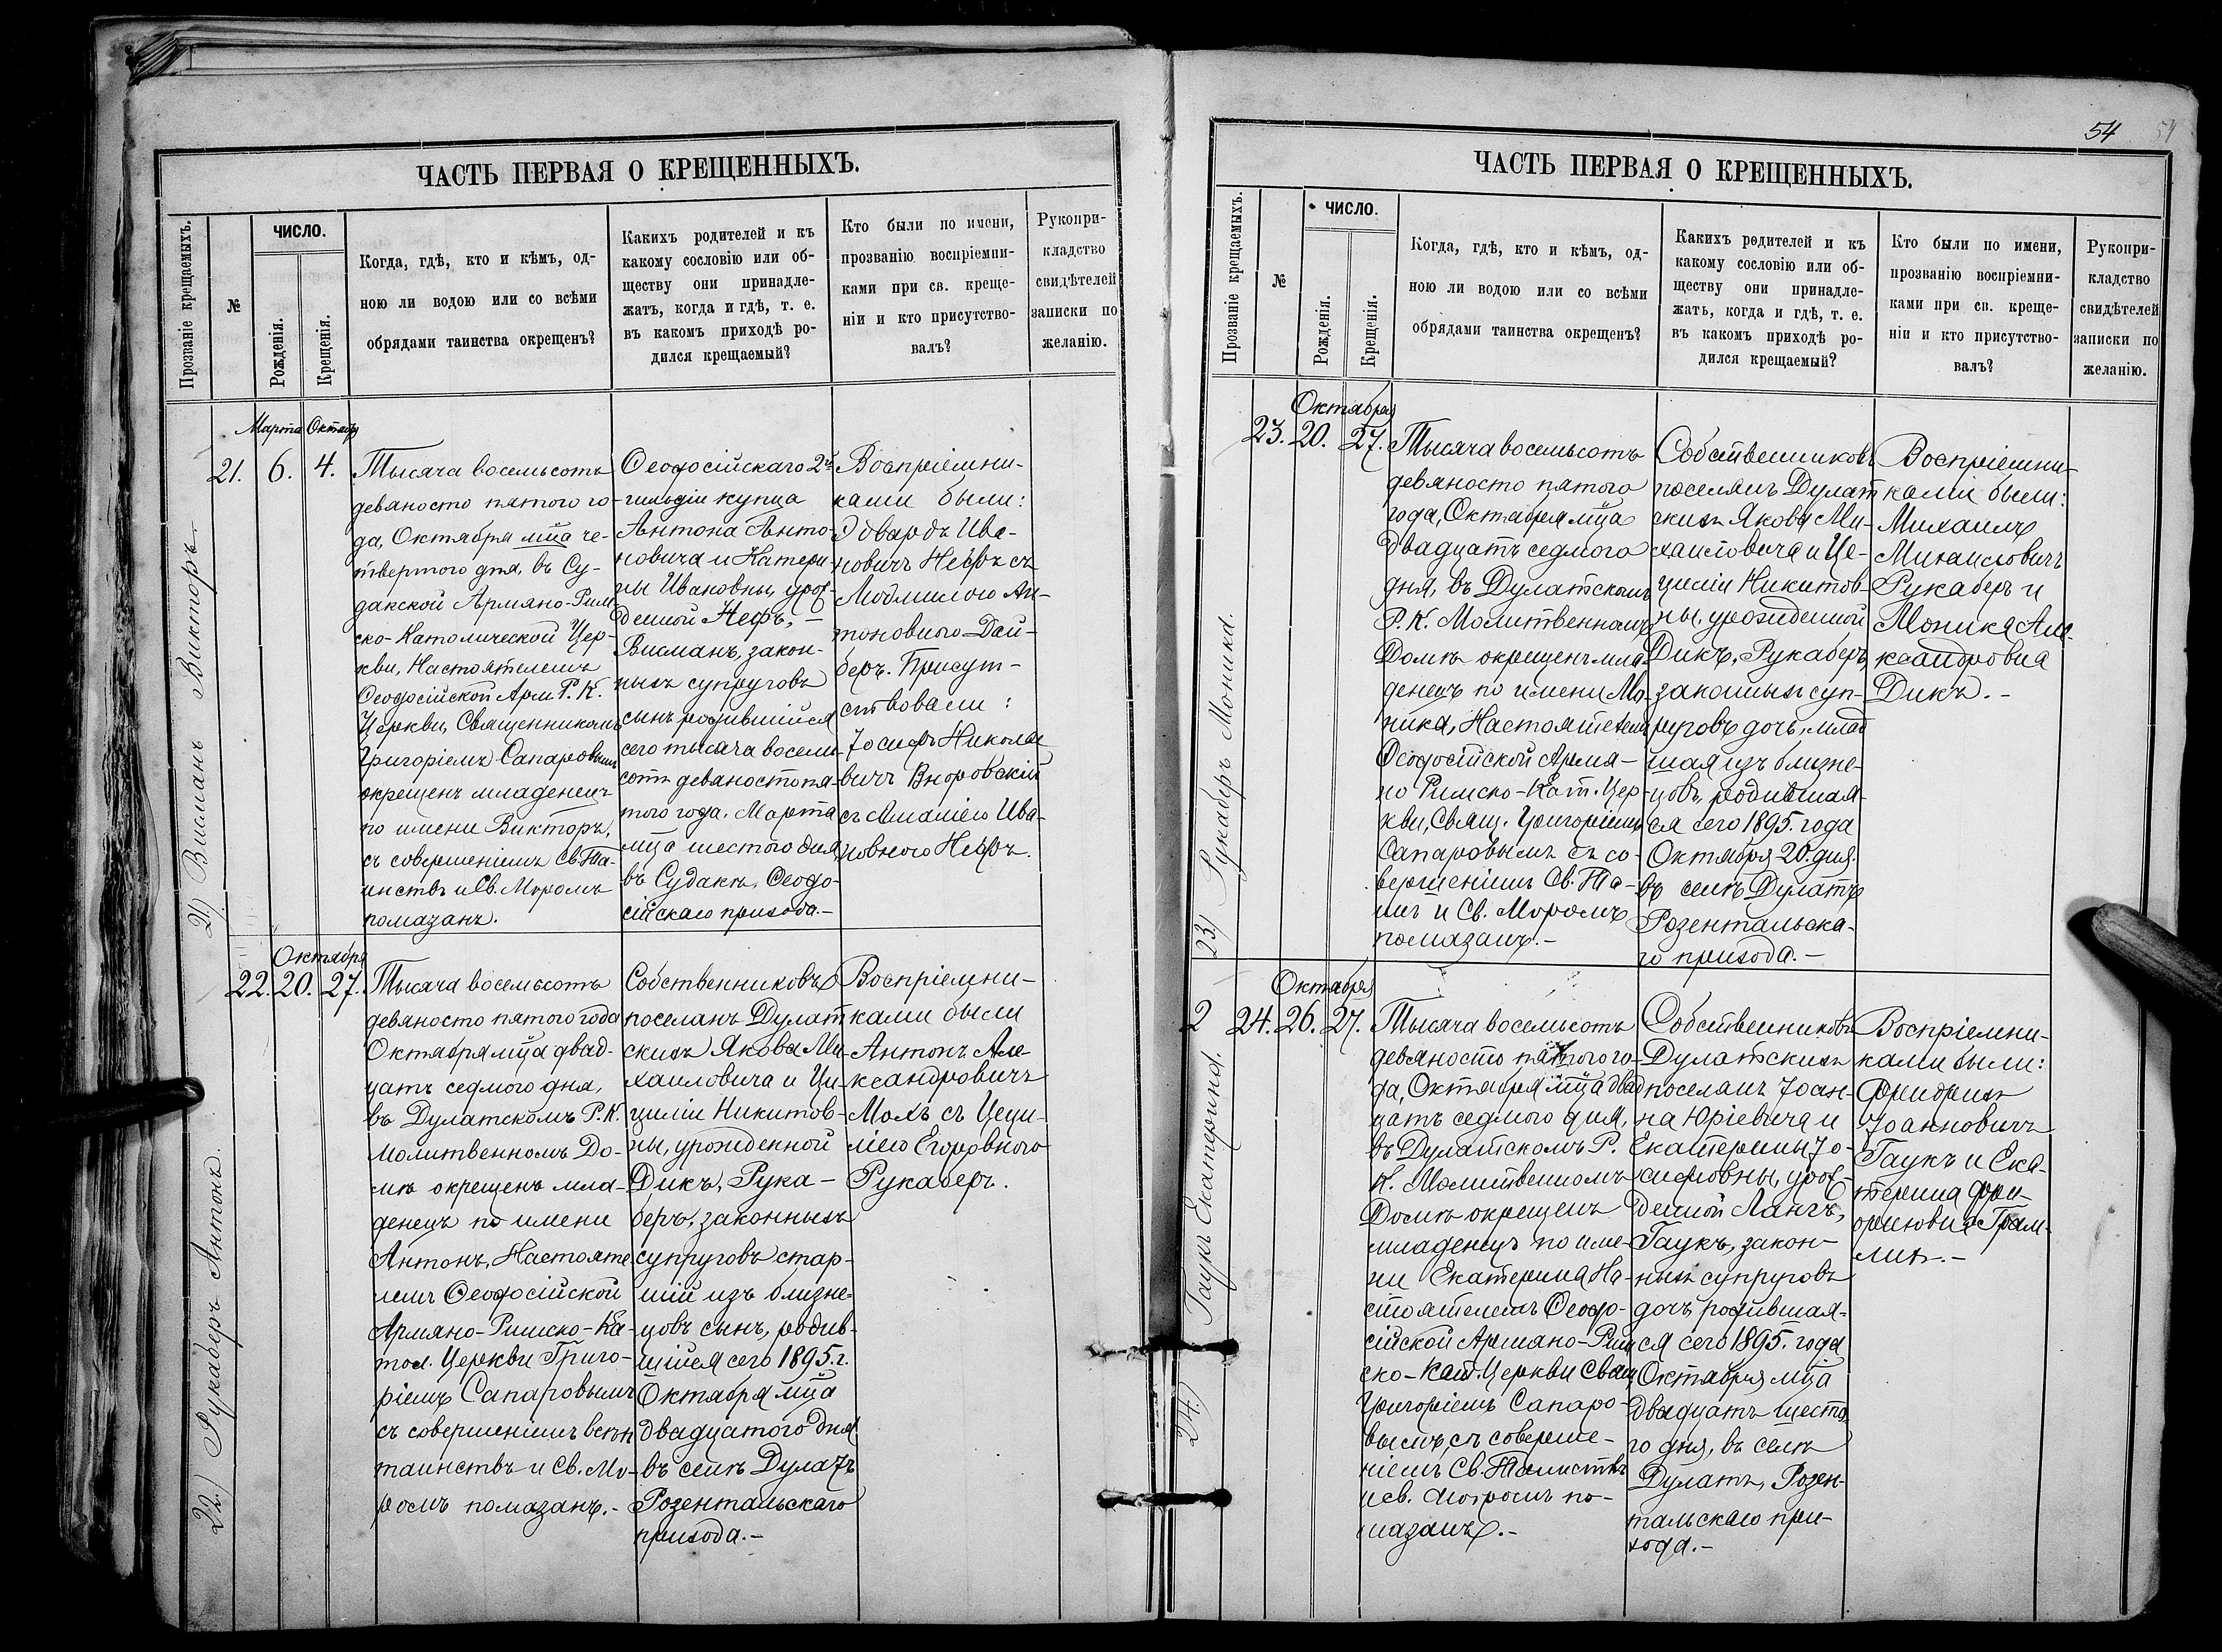 ЧАСТЬ ПЕРВАЯ О КРЕЩЕННЫХЪ.
Прозваніе крещаемыхъ.
№
ЧИСЛО.
Рожденія.
Крещенія.
Когда, гдѣ, кто и кѣмъ, од-
ною ли водою или со всѣми
обрядами таинства окрещенъ?
Какихъ родителей и къ
какому сословію или об-
ществу они принадле-
жатъ, когда и гдѣ, т. е.
въ какомъ приходѣ ро-
дился крещаемый?
Кто были по имени,
прозванію воспріемни-
ками при св. креще-
ніи и кто присутство-
валъ?
Рукопри-
кладство
свидѣтелей
записки по
желанію.
21) Висманъ Викторъ
Марта
21. 6. 4.
Тысяча восемьсотъ
девяносто пятого го-
да, Октября мца че-
твертого дня, въ Су-
дакской Армяно-Рим
ско-Католической Цер-
кви, Настоятелемъ
Ѳеодосійской Арм Р. К.
Церкви, Священникомъ
Григоріемъ Сапаровымъ
окрещенъ младенецъ
по имени Викторъ,
съ совершеніемъ Св. Та-
инствъ и Св. Мѵромъ
помазанъ.
Ѳеодосійскаго 2й
гильдіи купца
Антона Анто-
новича и Катери-
ны Ивановны, урож-
денной Нефъ, -
Висманъ, закон-
ныхъ супруговъ
сынъ родившійся
сего тысяча восемь
сотъ девяносто пя-
того года. Марта
мца шестого дня,
въ Судакѣ, Ѳеодо-
сійскаго прихода.-
Воспріемни-
ками были:
Эдвардъ Ива-
новичъ Нефъ съ
Людмилою Ан-
тоновною Дай-
беръ. Присут-
ствовали:
Іосифъ Николае
вичъ Вноровскій
съ Амаліею Ива-
новною Нефъ.
22) Рукаберъ Антонъ.
Октября
22. 20. 27.
Тысяча восемьсотъ
девяносто пятого года
Октября мца двад-
цать седмого дня,
въ Дулатскомъ Р. К.
Молитвенномъ До-
мѣ окрещенъ мла-
денецъ по имени
Антонъ, Настояте
лемъ Ѳеодосійской
Армяно-Римско-Ка-
тол. Церкви Григо-
ріемъ Сапаровымъ
съ совершеніемъ всѣхъ
таинствъ и Св. Мѵ-
ромъ помазанъ.-
Собственниковъ
поселянъ Дулат
скихъ Якова Ми-
хаиловича и Ци-
циліи Никитов-
ны, урожденной
Дикъ, Рука-
беръ, законныхъ
супруговъ стар-
шій изъ близне-
цовъ сынъ, родив-
шійся сего 1895. г.
Октября мца
двадцатого дня
въ селѣ Дулатъ
Розентальскаго
прихода.-
Воспріемни-
ками были
Антонъ Але-
ксандровичъ
Молъ съ Цеци-
ліею Егоровною
Рукаберъ.
54
ЧАСТЬ ПЕРВАЯ О КРЕЩЕННЫХЪ.
Прозваніе крещаемыхъ.
№
ЧИСЛО.
Рожденія.
Крещенія.
Когда, гдѣ, кто и кѣмъ, од-
ною ли водою или со всѣми
обрядами таинства окрещенъ?
Какихъ родителей и къ
какому сословію или об-
ществу они принадле-
жатъ, когда и гдѣ, т. е.
въ какомъ приходѣ ро-
дился крещаемый?
Кто были по имени,
прозванію воспріемни-
ками при св. креще-
ніи и кто присутство-
валъ?
Рукопри-
кладство
свидѣтелей
записки по
желанію.
23) Рукаберъ Моника.
Октября
23. 20. 27.
Тысяча восемьсотъ
девяносто пятого
года, Октября мца
двадцать седмого
дня, въ Дулатскомъ
Р. К. Молитвенномъ
Домѣ окрещенъ мла
денецъ по имени Мо-
ника, Настоятелемъ
Ѳеодосійской Армя-
но Римско-Кат. Цер-
кви, Свящ. Григоріемъ
Сапаровымъ съ со-
вершеніемъ Св. Та-
инъ и Св. Мѵромъ
помазанъ.-
Собственниковъ
поселянъ Дулат
скихъ Якова Ми-
хаиловича и Це-
циліи Никитов-
ны, урожденной
Дикъ, Рукаберъ,
законныхъ суп-
руговъ дочь, млад
шая изъ близне-
цовъ, родившая-
ся сего 1895. года
Октября 20. дня.
въ селѣ Дулатъ
Розентальска-
го прихода.-
Воспріемни-
ками были:
Михаилъ
Михаиловичъ
Рукаберъ и
Моника Але-
ксандровна
Дикъ.-
24) Гаукъ Екатерина.
2
Октября
24. 26. 27.
Тысяча восемьсотъ
девяносто пятого го-
да, Октября мца двад
цать седмого дня,
въ Дулатскомъ Р.
К. Молитвенномъ
Домѣ окрещенъ
младенецъ по име-
ни Екатерина На-
стоятелемъ Ѳеодо-
сійской Армяно-Рим
ско-Кат. Церкви Свящ.
Григоріемъ Сапаро-
вымъ, съ соверше-
ніемъ Св. Таинствъ
и св. Мѵромъ по-
мазанъ.-
Собственниковъ
Дулатскихъ
поселянъ Іоан-
на Юріевича и
Екатерины Іо-
сифовны, урож-
денной Лангъ,
Гаукъ, закон-
ныхъ супруговъ
дочь родившая-
ся сего 1895. года
Октября мца
двадцать шесто
го дня, въ селѣ
Дулатъ, Розен-
тальскаго при-
хода.-
Воспріемни-
ками были:
Фридрихъ
Іоанновичъ
Гаукъ и Ека-
терина Фри-